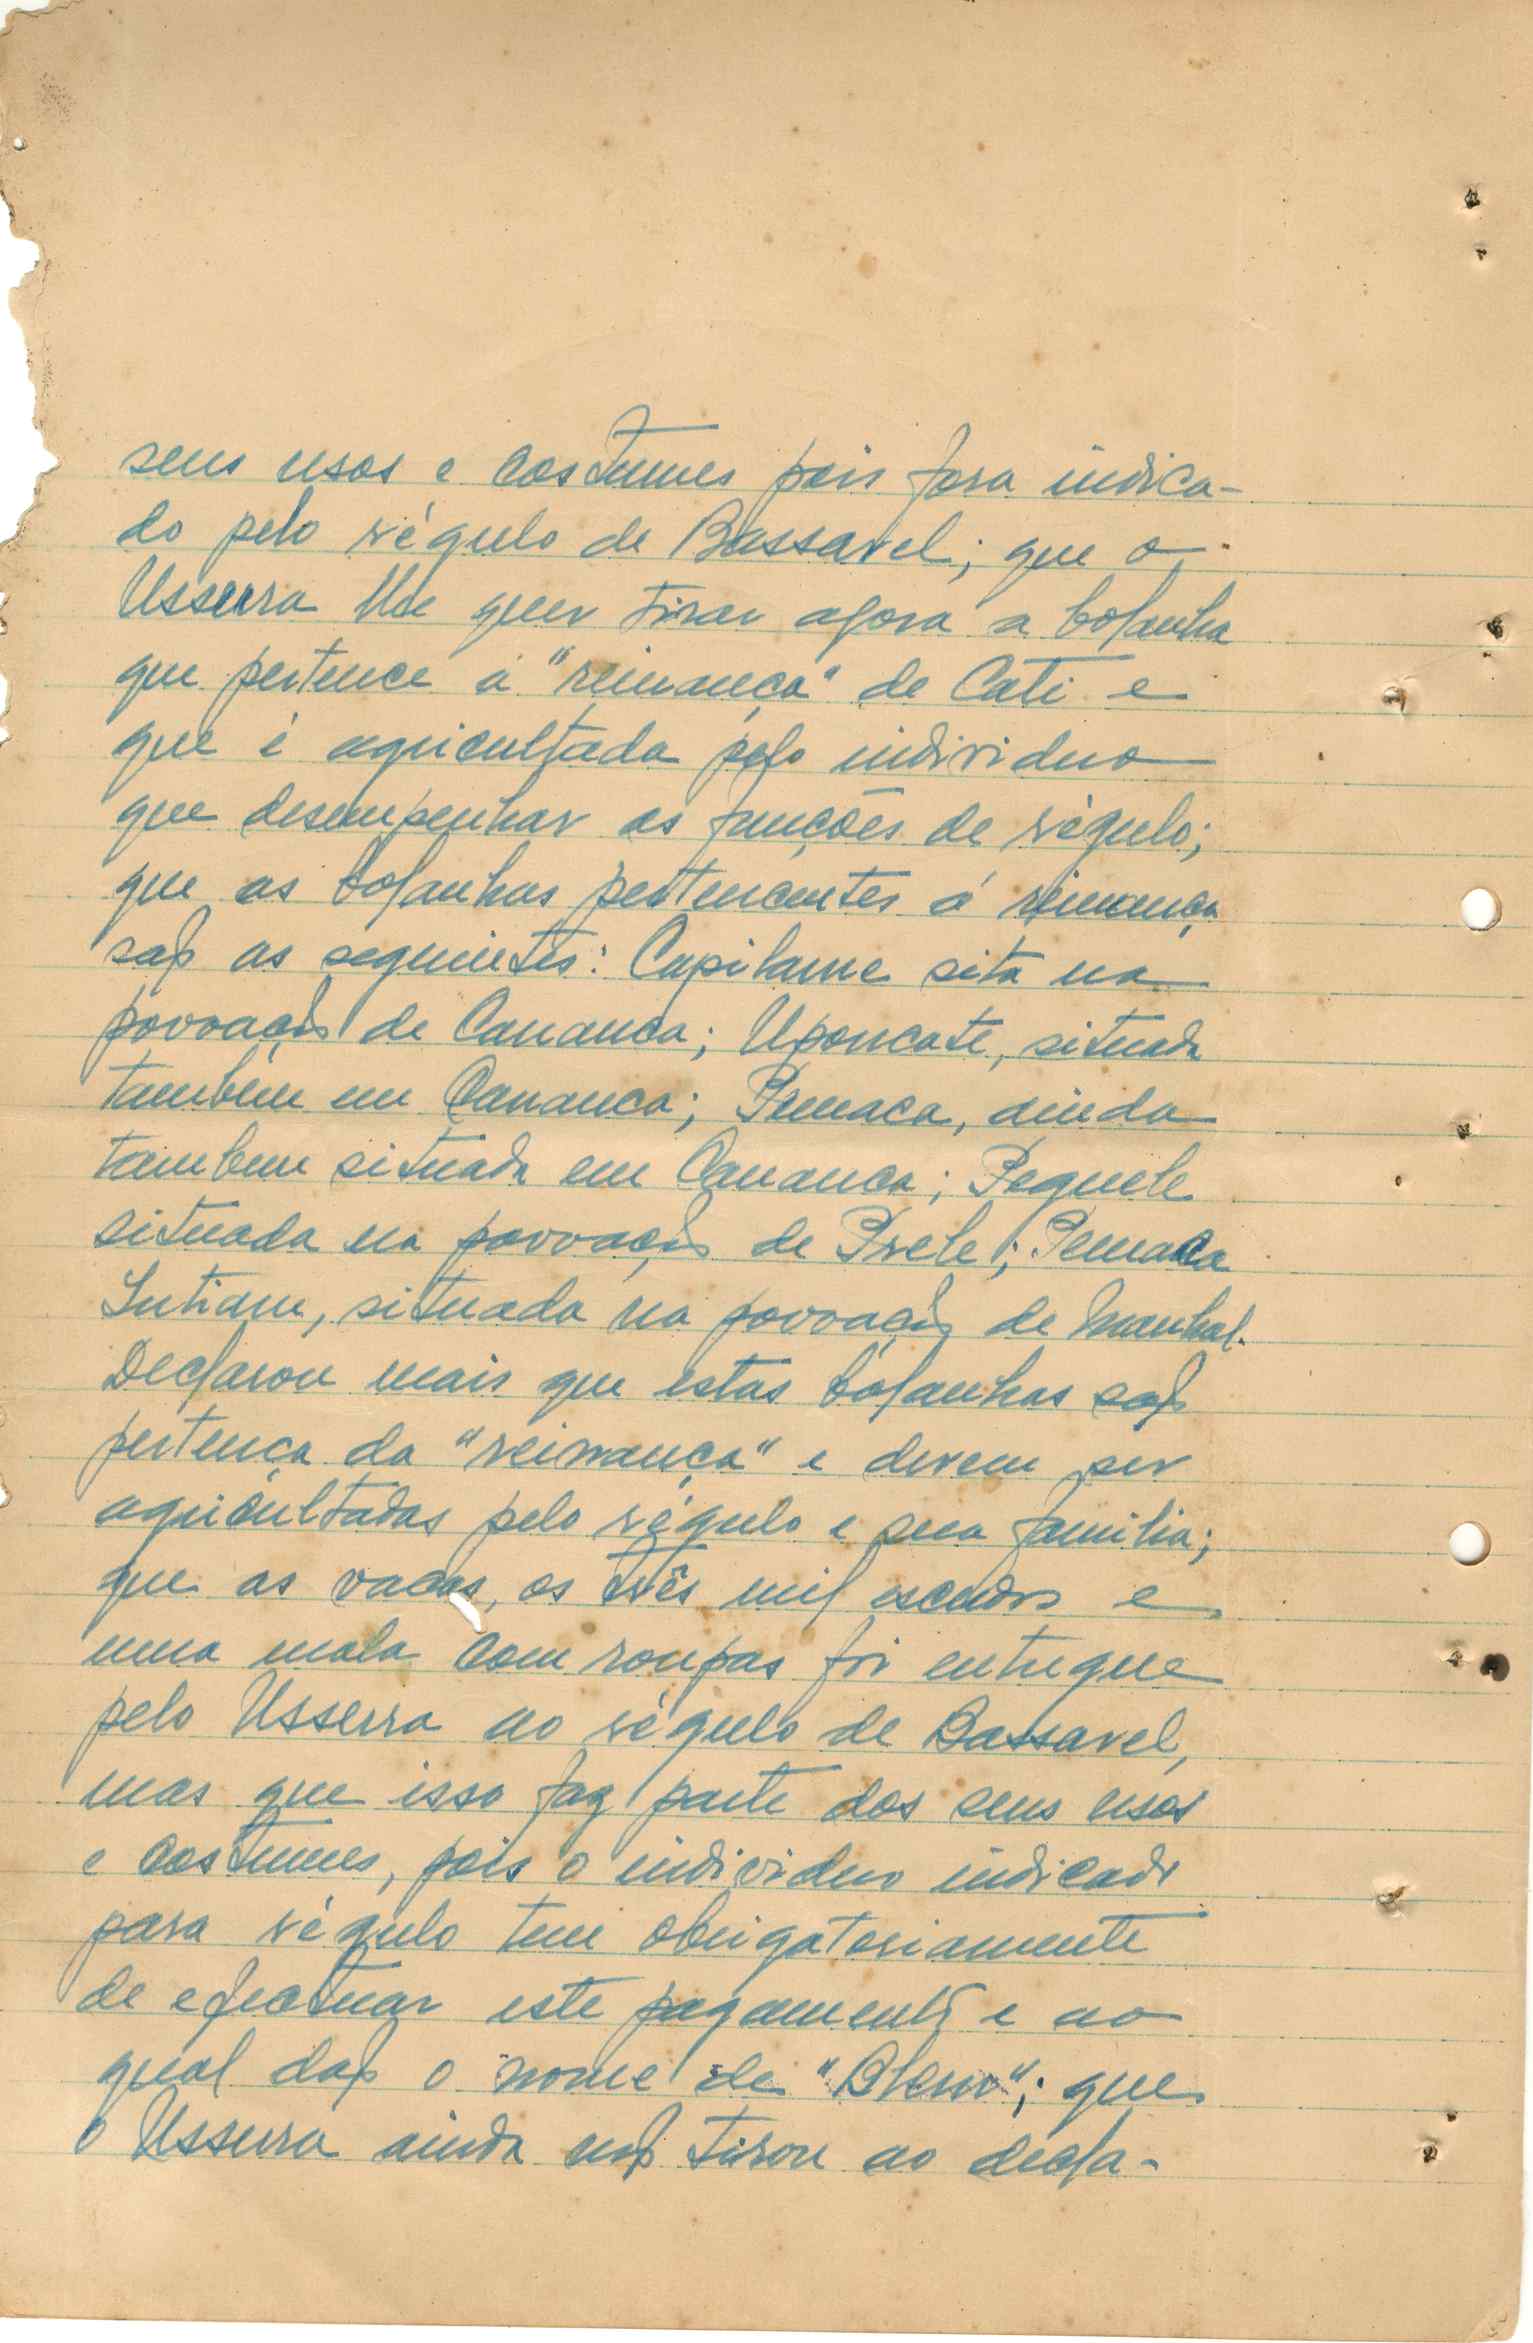 seus usos e costumes pois fora indica-
do pelo régulo de Bassarel; que o
Usserra lhe quer tirar agora a bolanha
que pertence á "reinança" de Cati e
que é agricultada pelo individuo
que desempenhar as funções de régulo;
que as bolanhas pertencentes á reinança
são as seguintes: Capilame sita na
povoação de Cananca; Uponcate, situada
tambem em Cananca; Pemaca, ainda
tambem situada em Cananca; Pequele
situada na povoação de Prele; Pemaca
Intiam, situada na povoação de Manhal.
Declarou mais que estas bolanhas são
pertença da "reinança" e devem ser
agricultadas pelo régulo e sua familia;
que as vacas, os três mil escudos e
uma mala com roupas foi entregue
pelo Usserra ao régulo de Bassarel,
mas que isso faz parte dos seus usos
e costumes, pois o individuo indicado
para régulo tem obrigatoriamente
de efectuar este pagamento e ao
qual dão o nome de que
o Usserra ainda não tirou ao decla-